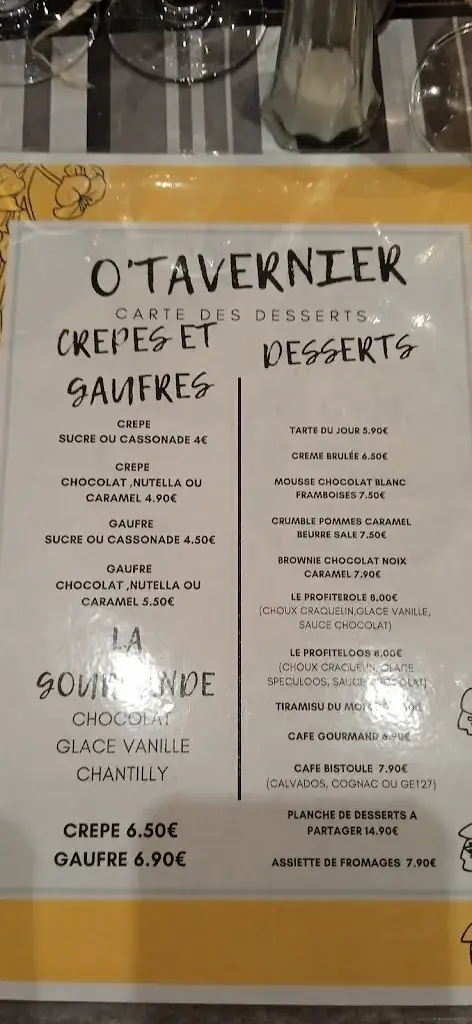 O'TAVERNIER
CARTE DES DESSERTS
CREPES ET
GAUFRES
CREPE
SUCRE OU CASSONADE 4€
CREPE
CHOCOLAT ,NUTELLA OU
CARAMEL 4.90€
GAUFRE
SUCRE OU CASSONADE 4.50€
GAUFRE
CHOCOLAT ,NUTELLA OU
CARAMEL 5.50€
LA
GOURMANDE
CHOCOLAT
GLACE VANILLE
CHANTILLY
CREPE 6.50€
GAUFRE 6.90€
DESSERTS
TARTE DU JOUR 5.90€
CREME BRULÉE 6.50€
MOUSSE CHOCOLAT BLANC
FRAMBOISES 7.50€
CRUMBLE POMMES CARAMEL
BEURRE SALE 7.50€
BROWNIE CHOCOLAT NOIX
CARAMEL 7.90€
LE PROFITEROLE 8.00€
(CHOUX CRAQUELIN,GLACE VANILLE,
SAUCE CHOCOLAT)
LE PROFITELOOS 8.00€
(CHOUX CRAQUELIN, GLACE
SPECULOOS, SAUCE CHOCOLAT)
TIRAMISU DU
CAFE GOURMAND
CAFE BISTOULE 7.90€
(CALVADOS, COGNAC OU GET27)
PLANCHE DE DESSERTS A
PARTAGER 14.90€
ASSIETTE DE FROMAGES 7.90€